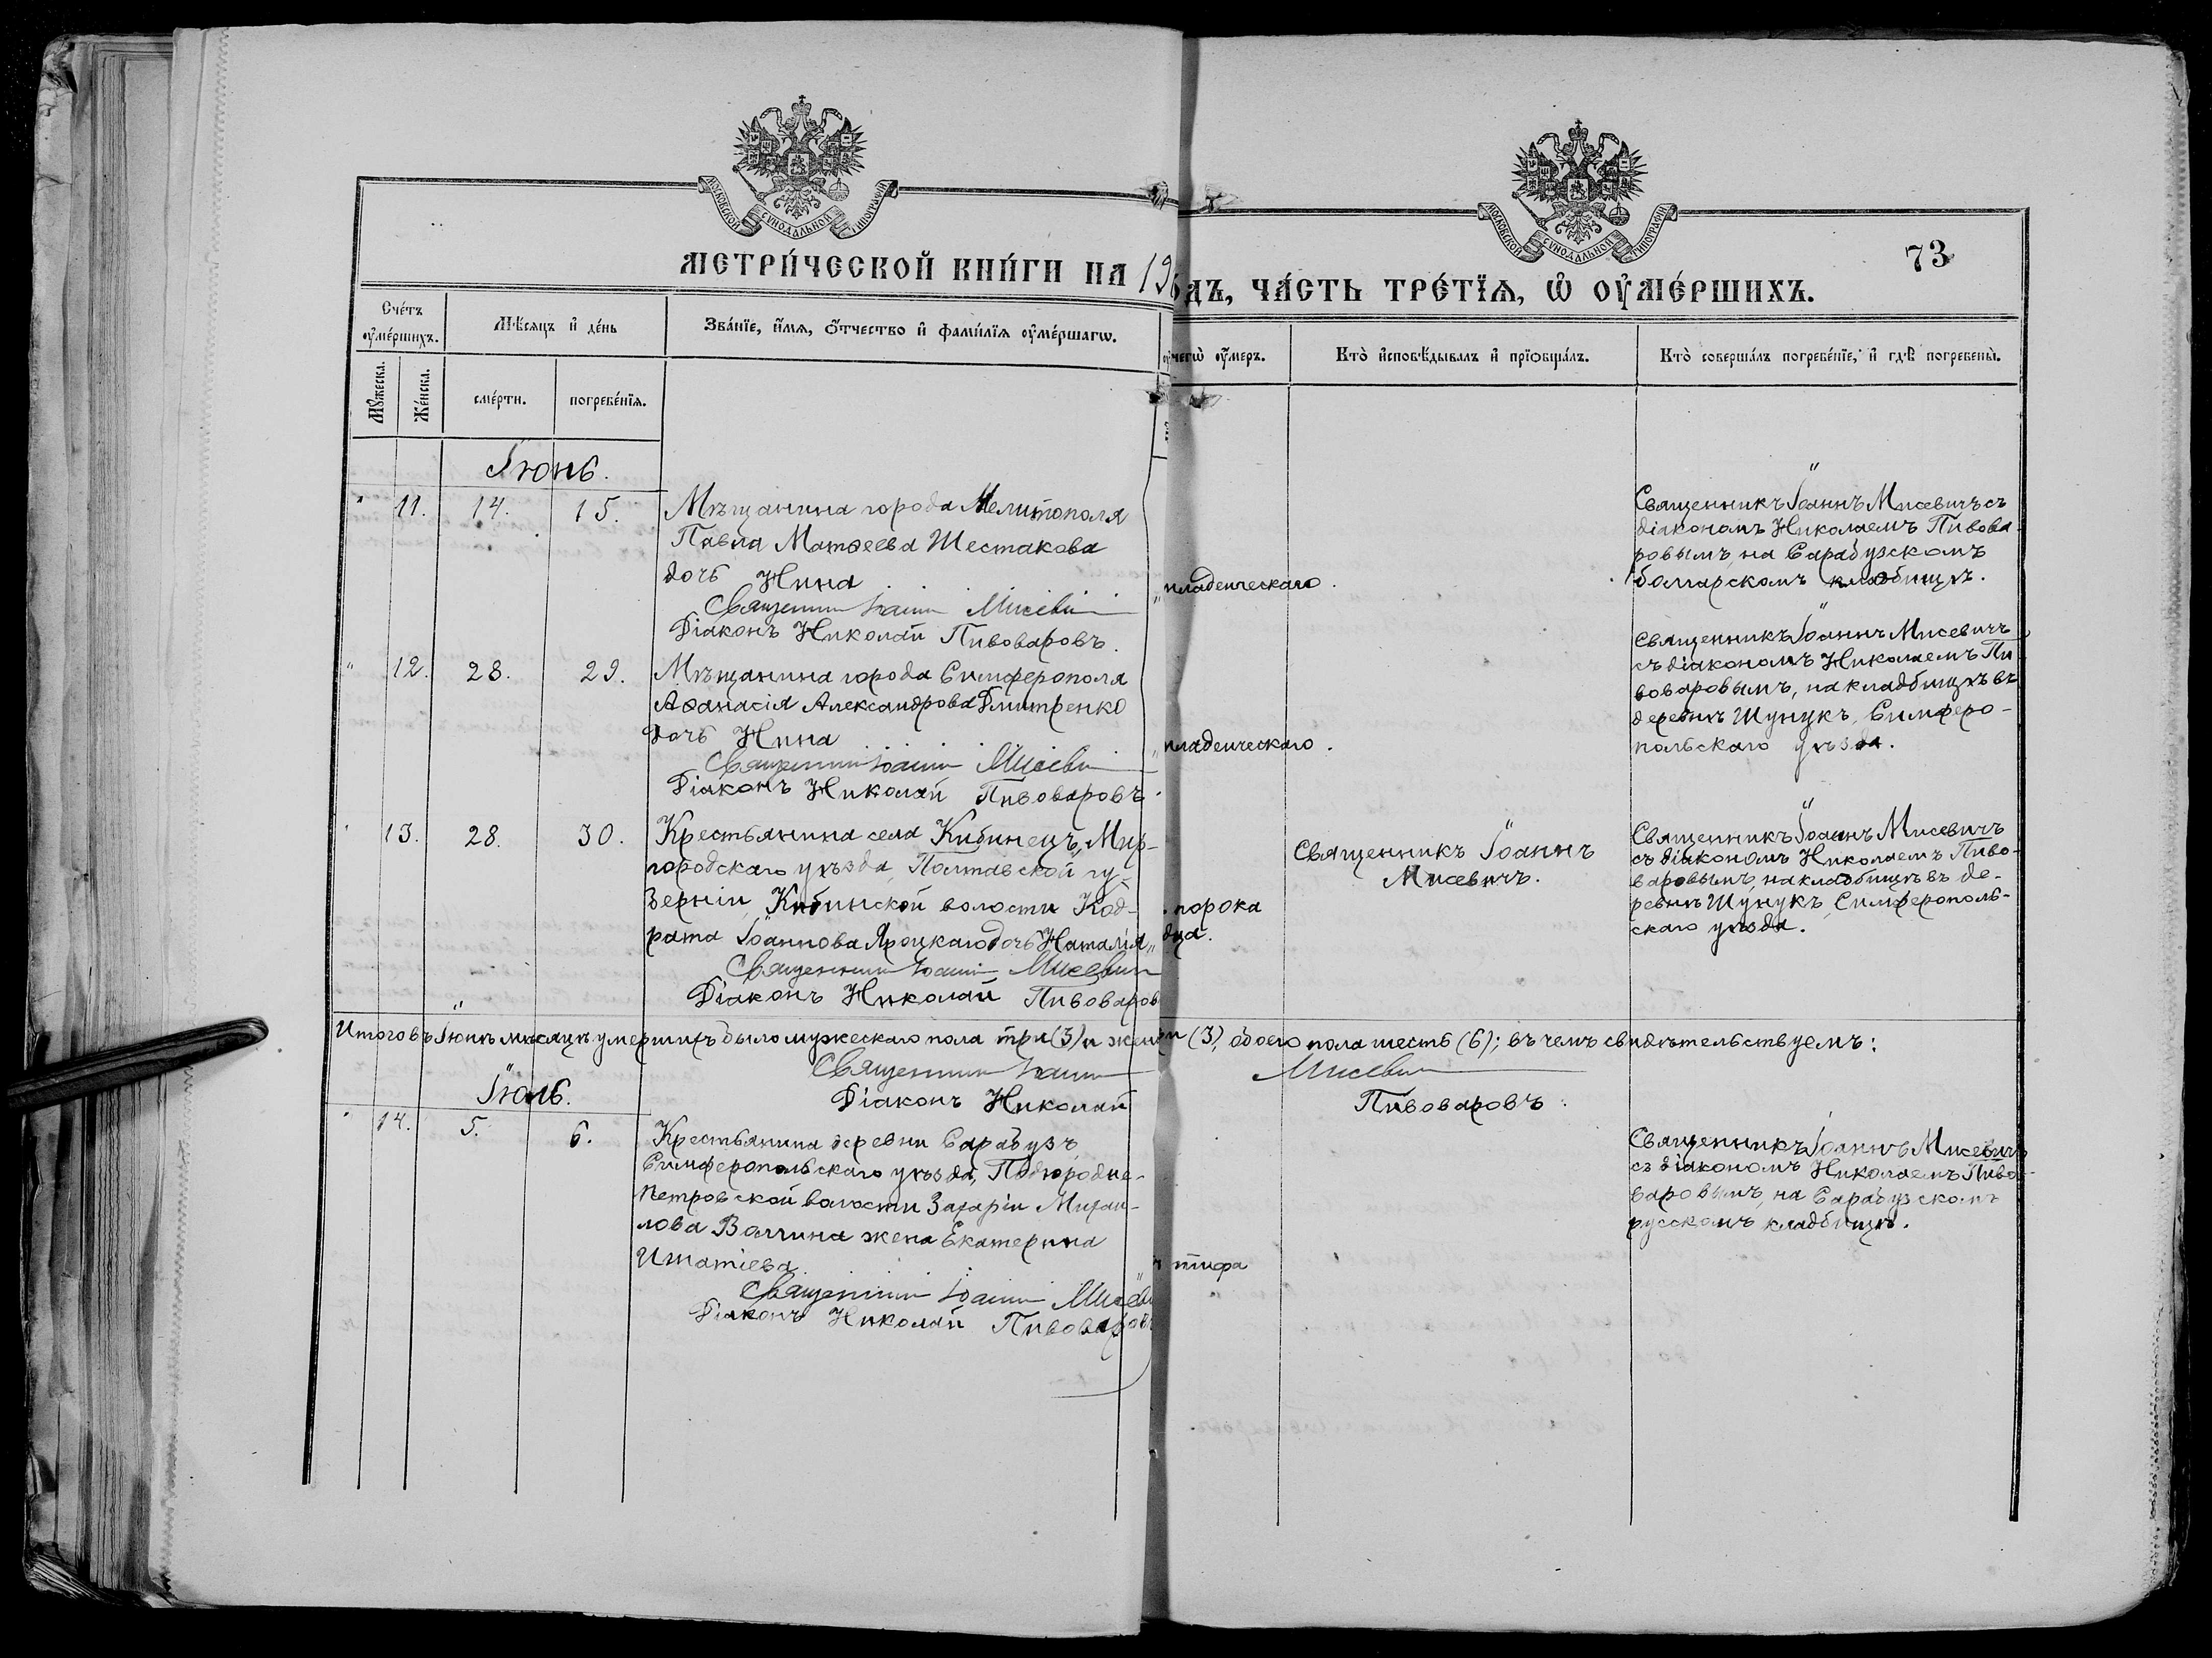 МОСКОВСКОЙ СѴНОДАЛЬНОЙ ТИПОГРАФІИ
МОСКОВСКОЙ СѴНОДАЛЬНОЙ ТИПОГРАФІИ
73
МЕТРИ́ЧЕСКОЙ КНИ́ГИ НА 19
ДЪ, ЧА́СТЬ ТРЕ́ТЇѦ, Ѡ ОУ҆МЕ́РШИХЪ.
Сче́тъ оу҆ме́ршихъ.
Мѣ́сяцъ и҆ де́нь
Зва́нїе, и҆́мѧ, ѻ҆́тчество и҆ фами́лїѧ оу҆ме́ршагѡ.
чегѡ̀ оу҆́меръ.
Кто̀ и҆сповѣ́дывалъ и҆ прїѡбща́лъ.
Кто̀ соверша́лъ погребе́нїе, и҆ гдѣ̀ погребены̀.
Мꙋ́жеска.
Же́нска.
сме́рти.
погребе́нїѧ.
Іюнь.
" 11. 14. 15.
Мѣщанина города Мелитополя
Павла Матѳеева Шестакова
дочь Нина
младенческаго.
Священникъ Іоаннъ Мисевичъ
Діаконъ Николай Пивоваровъ.
Священникъ Іоаннъ Мисевичъ съ
діакономъ Николаемъ Пивова-
ровымъ, на Сарабузскомъ
болгарскомъ кладбищѣ.
" 12. 28. 29.
Мѣщанина города Симферополя
Аѳанасія Александрова Дмитренко
дочь Нина
младенческаго.
Священникъ Іоаннъ Мисевичъ
Діаконъ Николай Пивоваровъ.
Священникъ Іоаннъ Мисевичъ
съ діакономъ Николаемъ Пи
воваровымъ, на кладбищѣ въ
деревнѣ Шунукъ, Симферо-
польскаго уѣзда.
" 13. 28. 30.
Крестьянина села Кибинецъ, Мир-
городскаго уѣзда, Полтавской гу-
берніи, Кибинской волости Код-
рата Іоаннова Яроцкаго дочь Наталія
порока
дца.
Священникъ Іоаннъ Мисевичъ
Діаконъ Николай Пивоваров
Священникъ Іоаннъ
Мисевичъ.
Священникъ Іоаннъ Мисевичъ
съ діакономъ Николаемъ Пиво-
варовымъ, на кладбищѣ въ де-
ревнѣ Шунукъ, Симферополь-
скаго уѣзда.
Итого въ Іюнѣ мѣсяцѣ умершихъ было мужескаго пола три (3) и жен (3), обоего пола шесть (6); въ чемъ свидѣтельствуемъ:
Священникъ Іоаннъ Мисевичъ
Діаконъ Николай Пивоваровъ.
Іюль.
" 14. 5. 6.
Крестьянина деревни Сарабузъ
Симферопольскаго уѣзда, Подгородне-
Петровской волости Захаріи Михаи-
лова Волчина жена Екатерина
Игнатіева
тифа
Священникъ Іоаннъ Мисеви
Діаконъ Николай Пивоваров
Священникъ Іоаннъ Мисевичъ
съ діакономъ Николаемъ Пиво-
варовымъ, на Сарабузскомъ
русскомъ кладбищѣ.